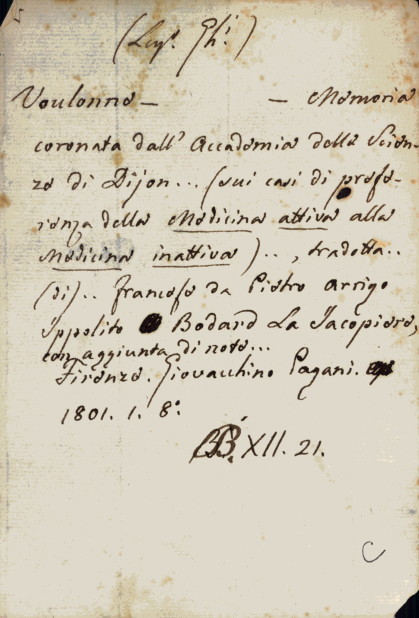 (Leg.e Gh.i)
Voulonne — — Memoria
coronata dall' Accademia delle Scien-
ze di Dijon... (sui casi di prefe-
renza della Medicina attiva alla
Medicina inattiva).., tradotta..
(di).. francese da Pietro Arrigo
Ippolito Bodard La Jacopiere,
con aggiunta di note...
Firenze. Giovacchino Pagani.
1801. 1. 8.o
B. XII. 21.
C